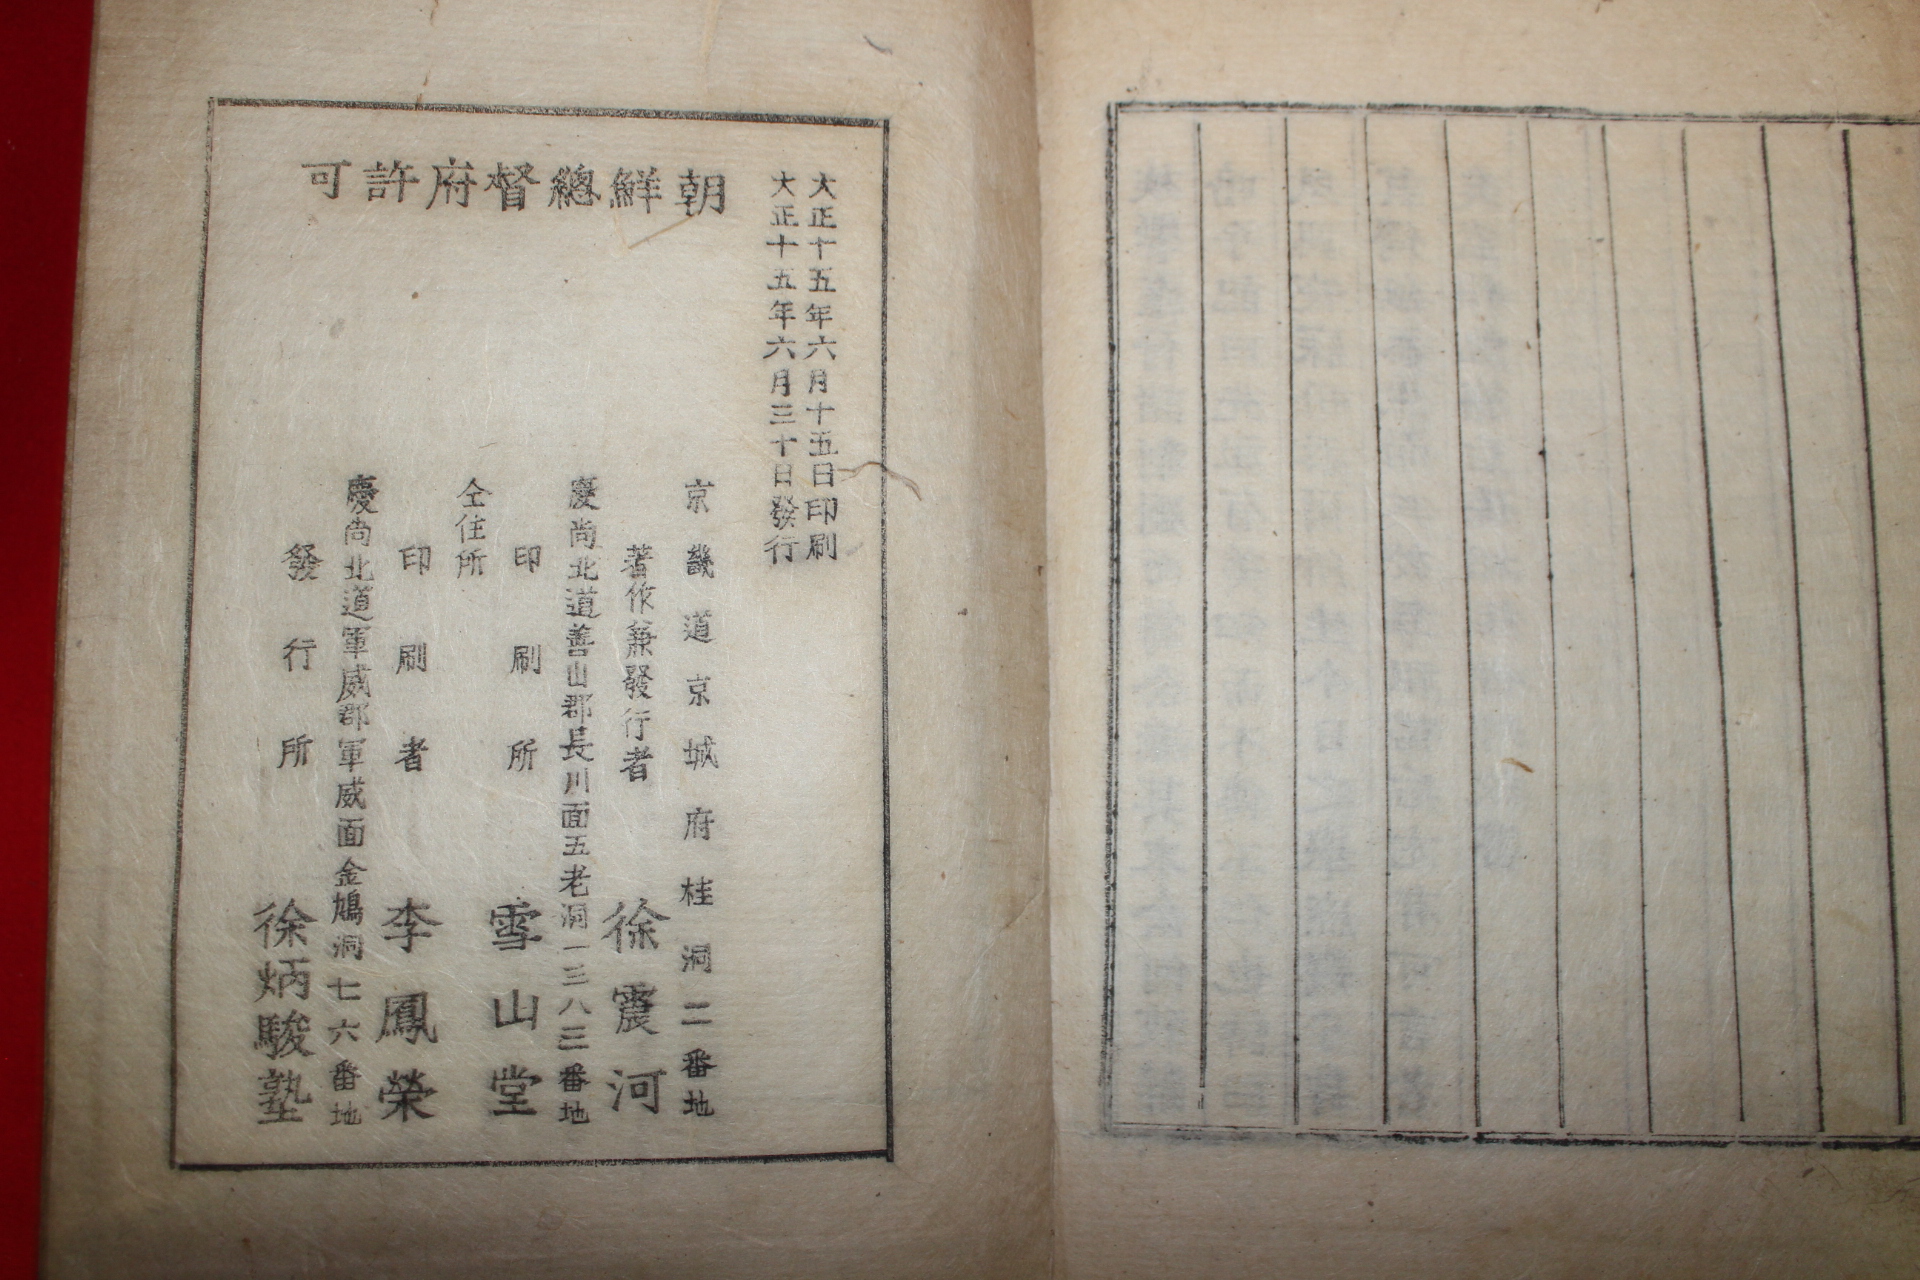 大正十五年六月十五日印刷
大正十五年六月三十日發行
朝鮮總督府許可
京畿道京城府桂洞二番地
著作兼發行者 徐震河
慶尚北道善山郡長川面五老洞一三八三番地
印刷所 雪山堂
仝住所
印刷者 李鳳榮
慶尚北道軍威郡軍威面金鳩洞七六番地
發行所 徐炳駿塾